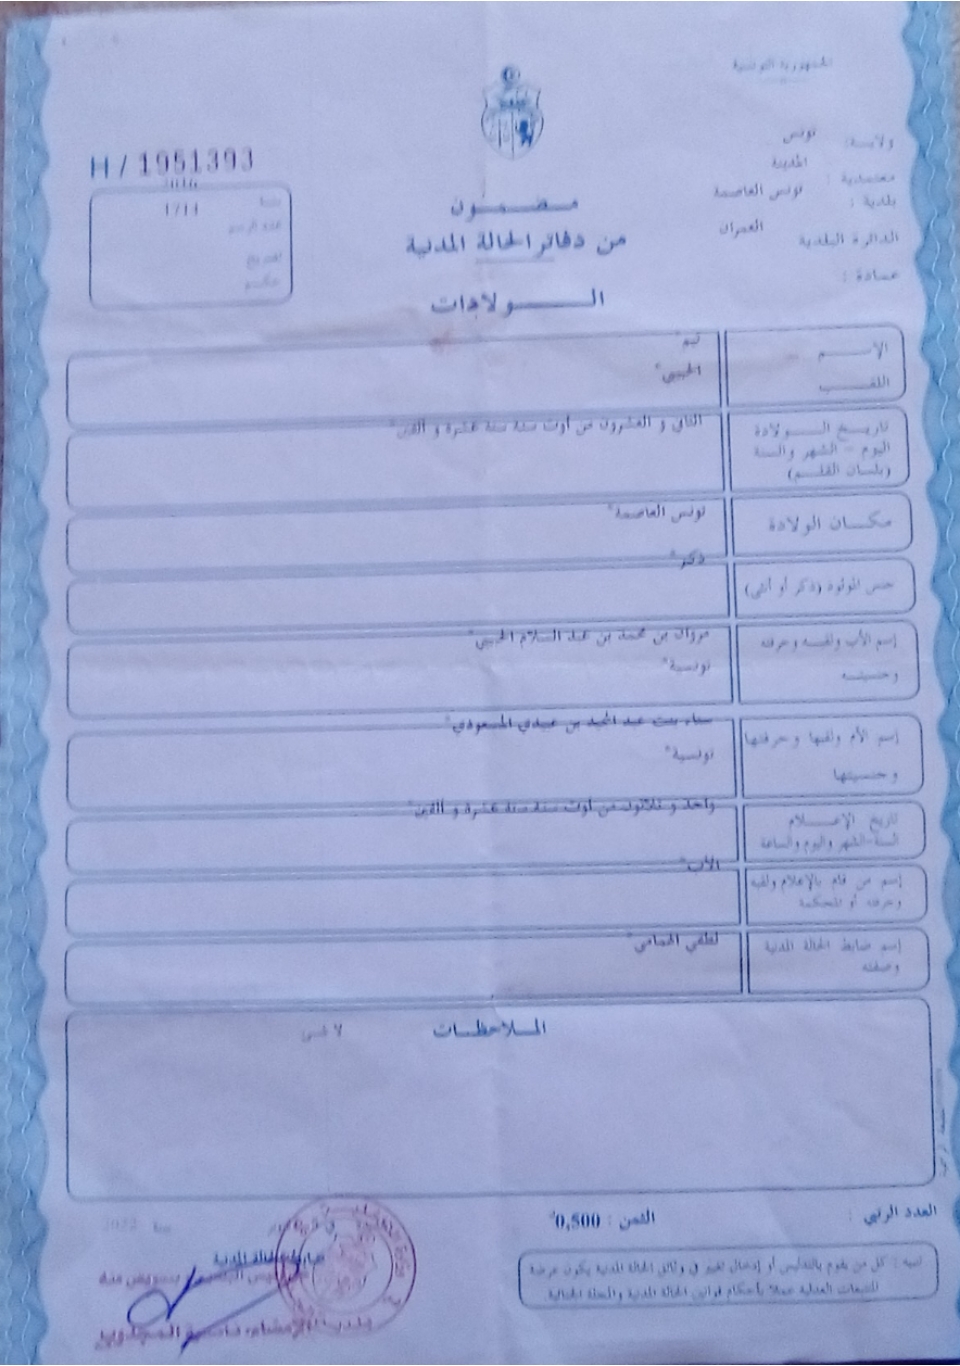 الجمهورية التونسية
ولاية: تونس
معتمدية : المدينة
بلدية : تونس العاصمة
الدائرة البلدية العمران
عمادة :
H / 1951393
سنة 2016
عدد الرسم 1711
مضمون
من دفاتر الحالة المدنية
الولادات
الاسم
اللقب
الحبيبي"
تاريخ الولادة
اليوم - الشهر والسنة
(بلسان القلم)
الثاني و العشرون من أوت سنة ستة عشرة و ألفين"
مكان الولادة
تونس العاصمة"
جنس المولود (ذكر أو أنثى)
ذكر"
إسم الأب ولقبه وحرفته
وجنسيته
مروان بن محمد بن عبد السلام الحبيبي"
تونسية"
إسم الأم ولقبها وحرفتها
وجنسيتها
سناء بنت عبد المجيد بن عبيدي المسعودي"
تونسية"
تاريخ الإعلام
السنة-الشهر واليوم والساعة
واحد و ثلاثون من أوت سنة ستة عشرة و ألفين"
إسم من قام بالإعلام ولقبه
وحرفته أو المحكمة
الأب"
إسم ضابط الحالة المدنية
وصفته
لطفي الحمامي"
الملاحظات
لا شيء
العدد الرتبي :
الثمن : 0,500د
تنبيه : كل من يقوم بالتدليس أو إدخال تغيير في وثائق الحالة المدنية يكون عرضة
للتتبعات العدلية عملا بأحكام قوانين الحالة المدنية والمجلة الجنائية
سنة 2022
ضابط الحالة المدنية